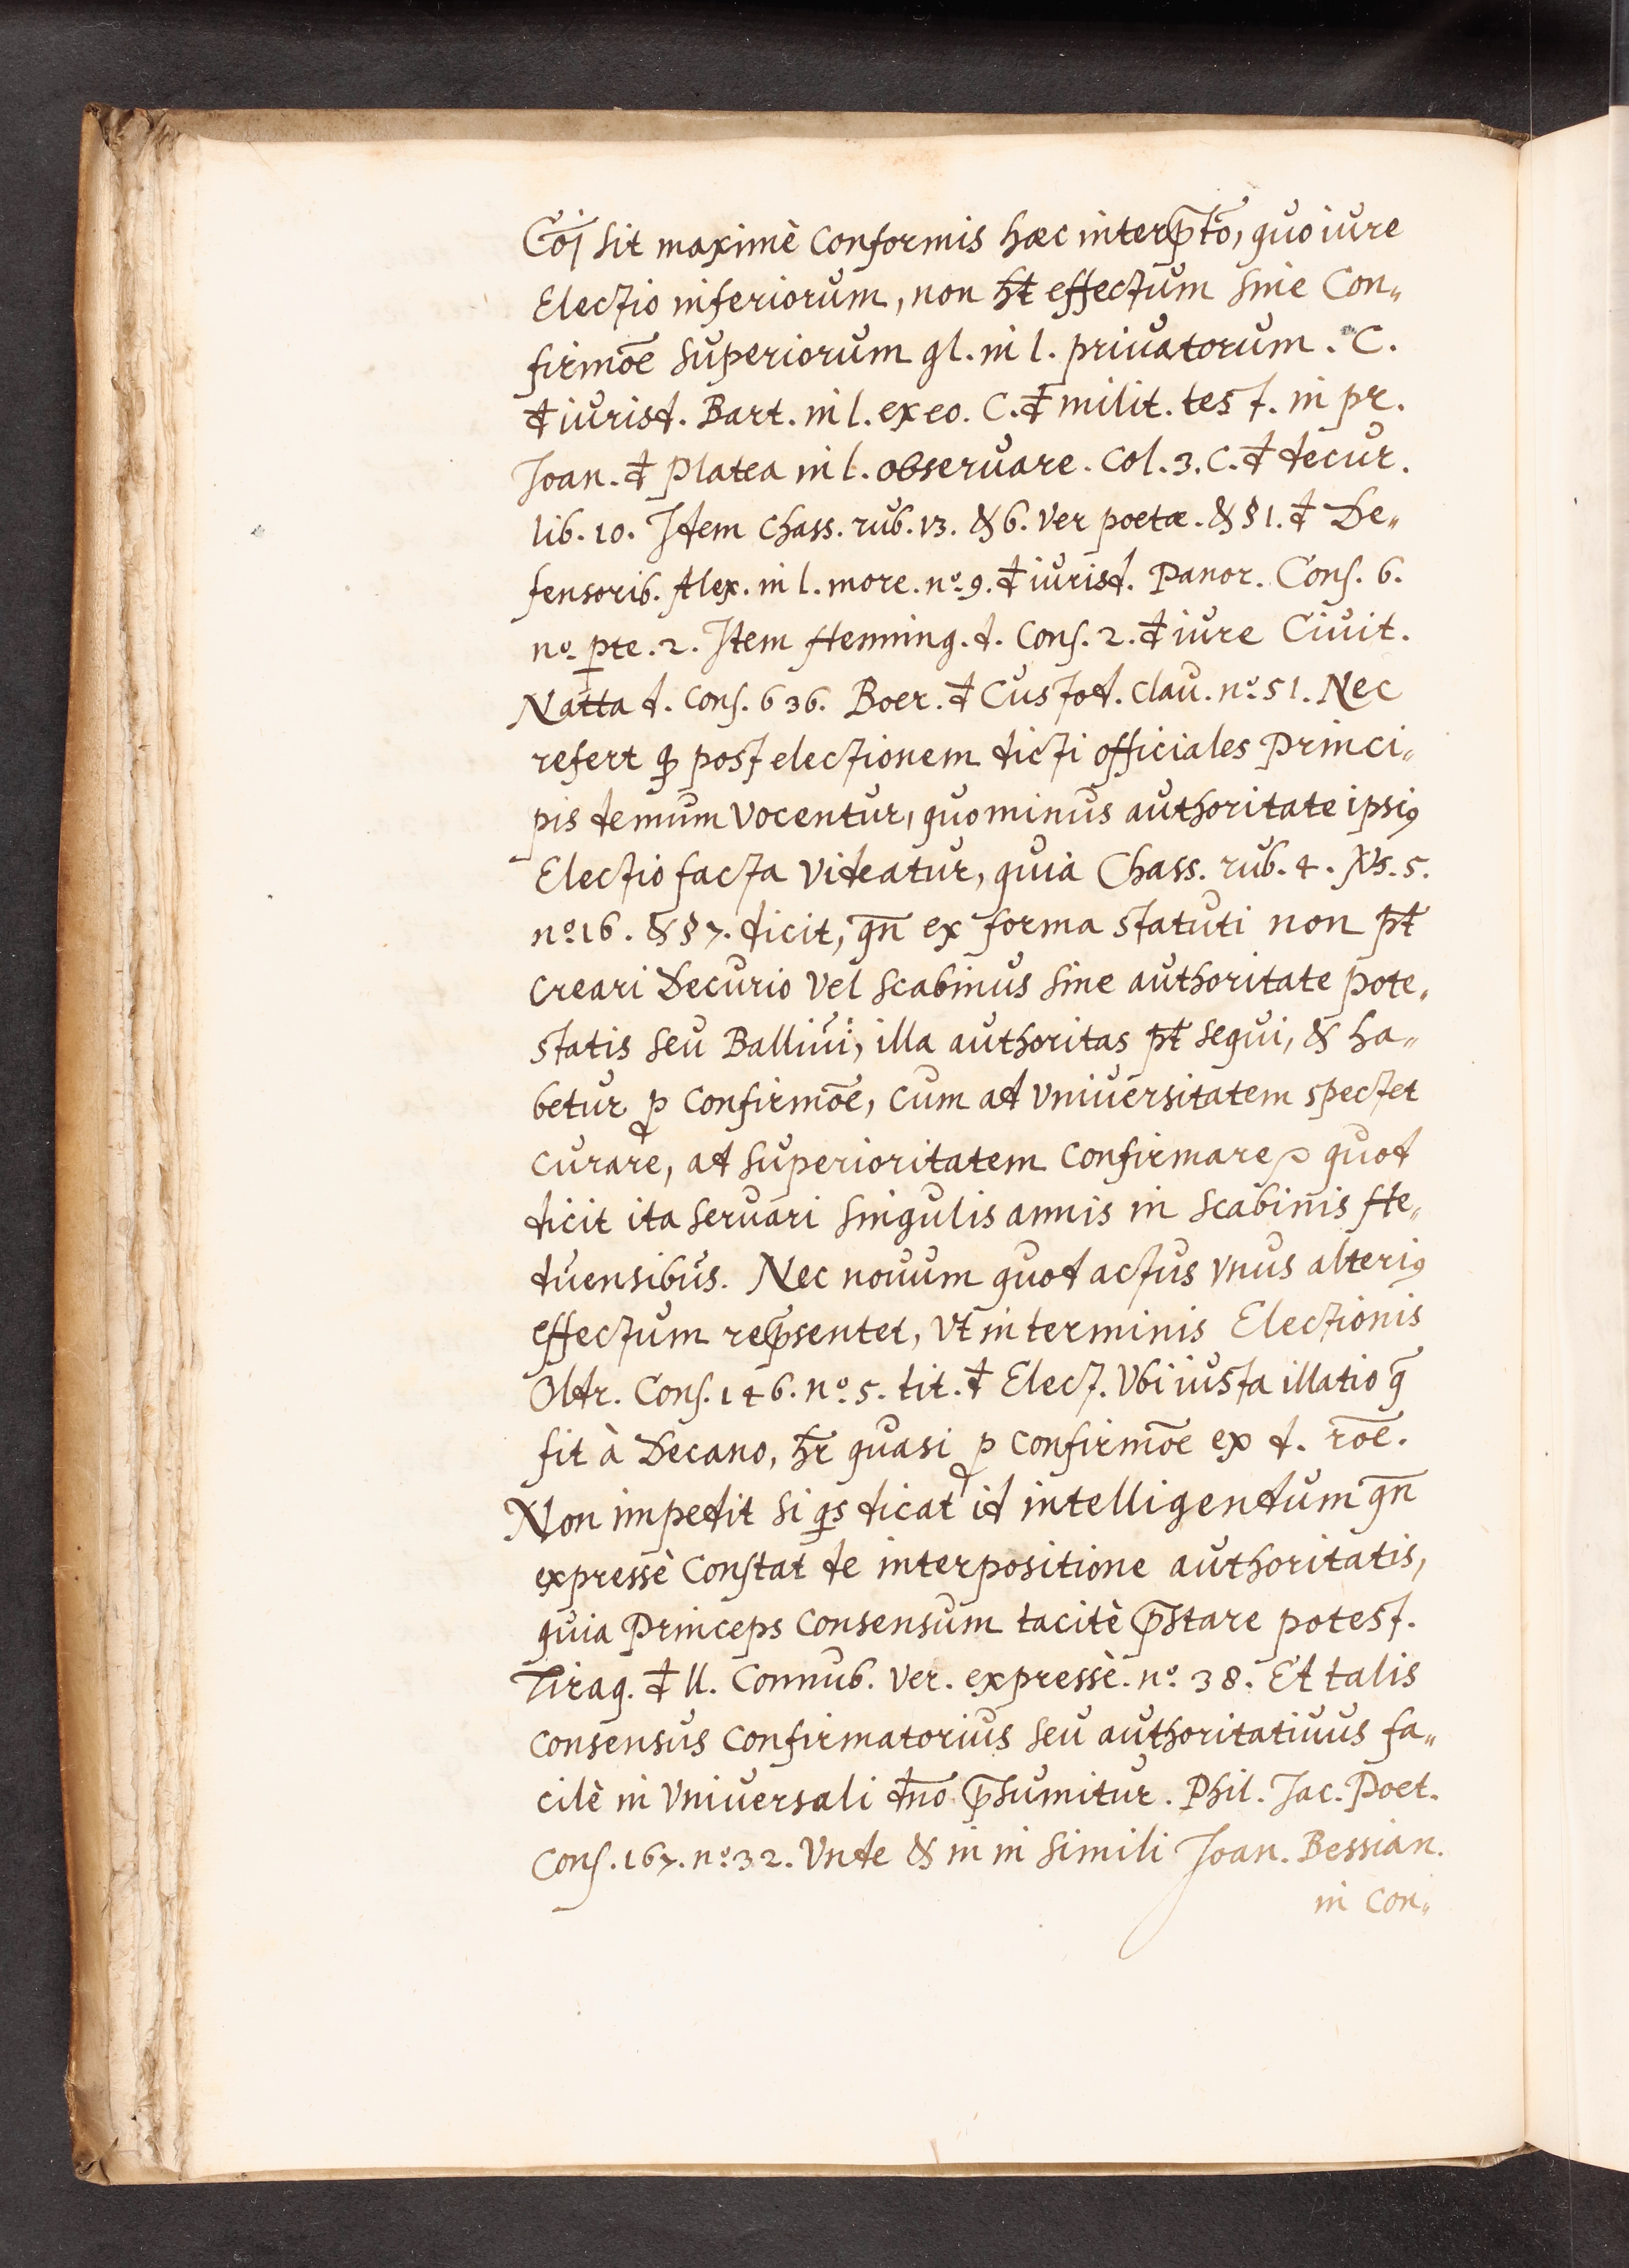 Cōi sit maximè conformis hæc interp̄tō, quo iure
Electio inferiorum, non ħt effectum sine Con„
firmōe superiorum gl. in l. priuatorum. C.
đ iurisd. Bart. in l. ex eo. C. đ milit. test. in pr.
Joan. đ Platea in l. observare. col. 3. C. đ decur.
lib. 10. Item Chass. rub. 13. & 6. ver poetæ. & § 1. đ De„
fensorib. Alex. in l. more. nº. 9. đ iurisd. Panor. Cons. 6.
nº. pte. 2. Item Henning. d. Cons. 2. đ iure Civit.
Natta d. cons. 636. Boer. đ Custod. clau. nº. 51. Nec
refert ꝙ post electionem dicti officiales Princi„
pis demum vocentur, quominus authoritate ipsiꝰ
Electio facta videatur, quia Chass. rub. 4. 5.
nº. 16. & § 7. dicit, qn̄ ex forma statuti non pt̄
creari Decurio vel scabinus sine authoritate pote„
statis seu Ballivi, illa authoritas pt̄ sequi, & ha„
betur ꝓ confirmōe, cum ad vniversitatem spectet
curare, ad superioritatem confirmare quod
dicit ita servari singulis annis in scabinis He„
duensibus. Nec novum quod actus vnus alteriꝰ
effectum rep̄sentet, vt in terminis Electionis
Oldr. Cons. 146. nº. 5. tit. đ Elect. Vbi iusta illatio q̄
fit à Decano, hr̄ quasi ꝓ confirmōe ex d. rōe.
Non impedit si qs dicat id intelligendum qn̄
expressè constat de interpositione authoritatis,
quia Princeps consensum tacitè p̄stare potest.
Tiraq. đ ll. Connub. ver. expressè. nº. 38. Et talis
consensus confirmatorius seu authoritativus fa„
cilè in vniversali dn̄o p̄sumitur. Phil. Jac. Poet.
Cons. 167. nº. 32. Vnde & in in simili Joan. Bessian.
in con„